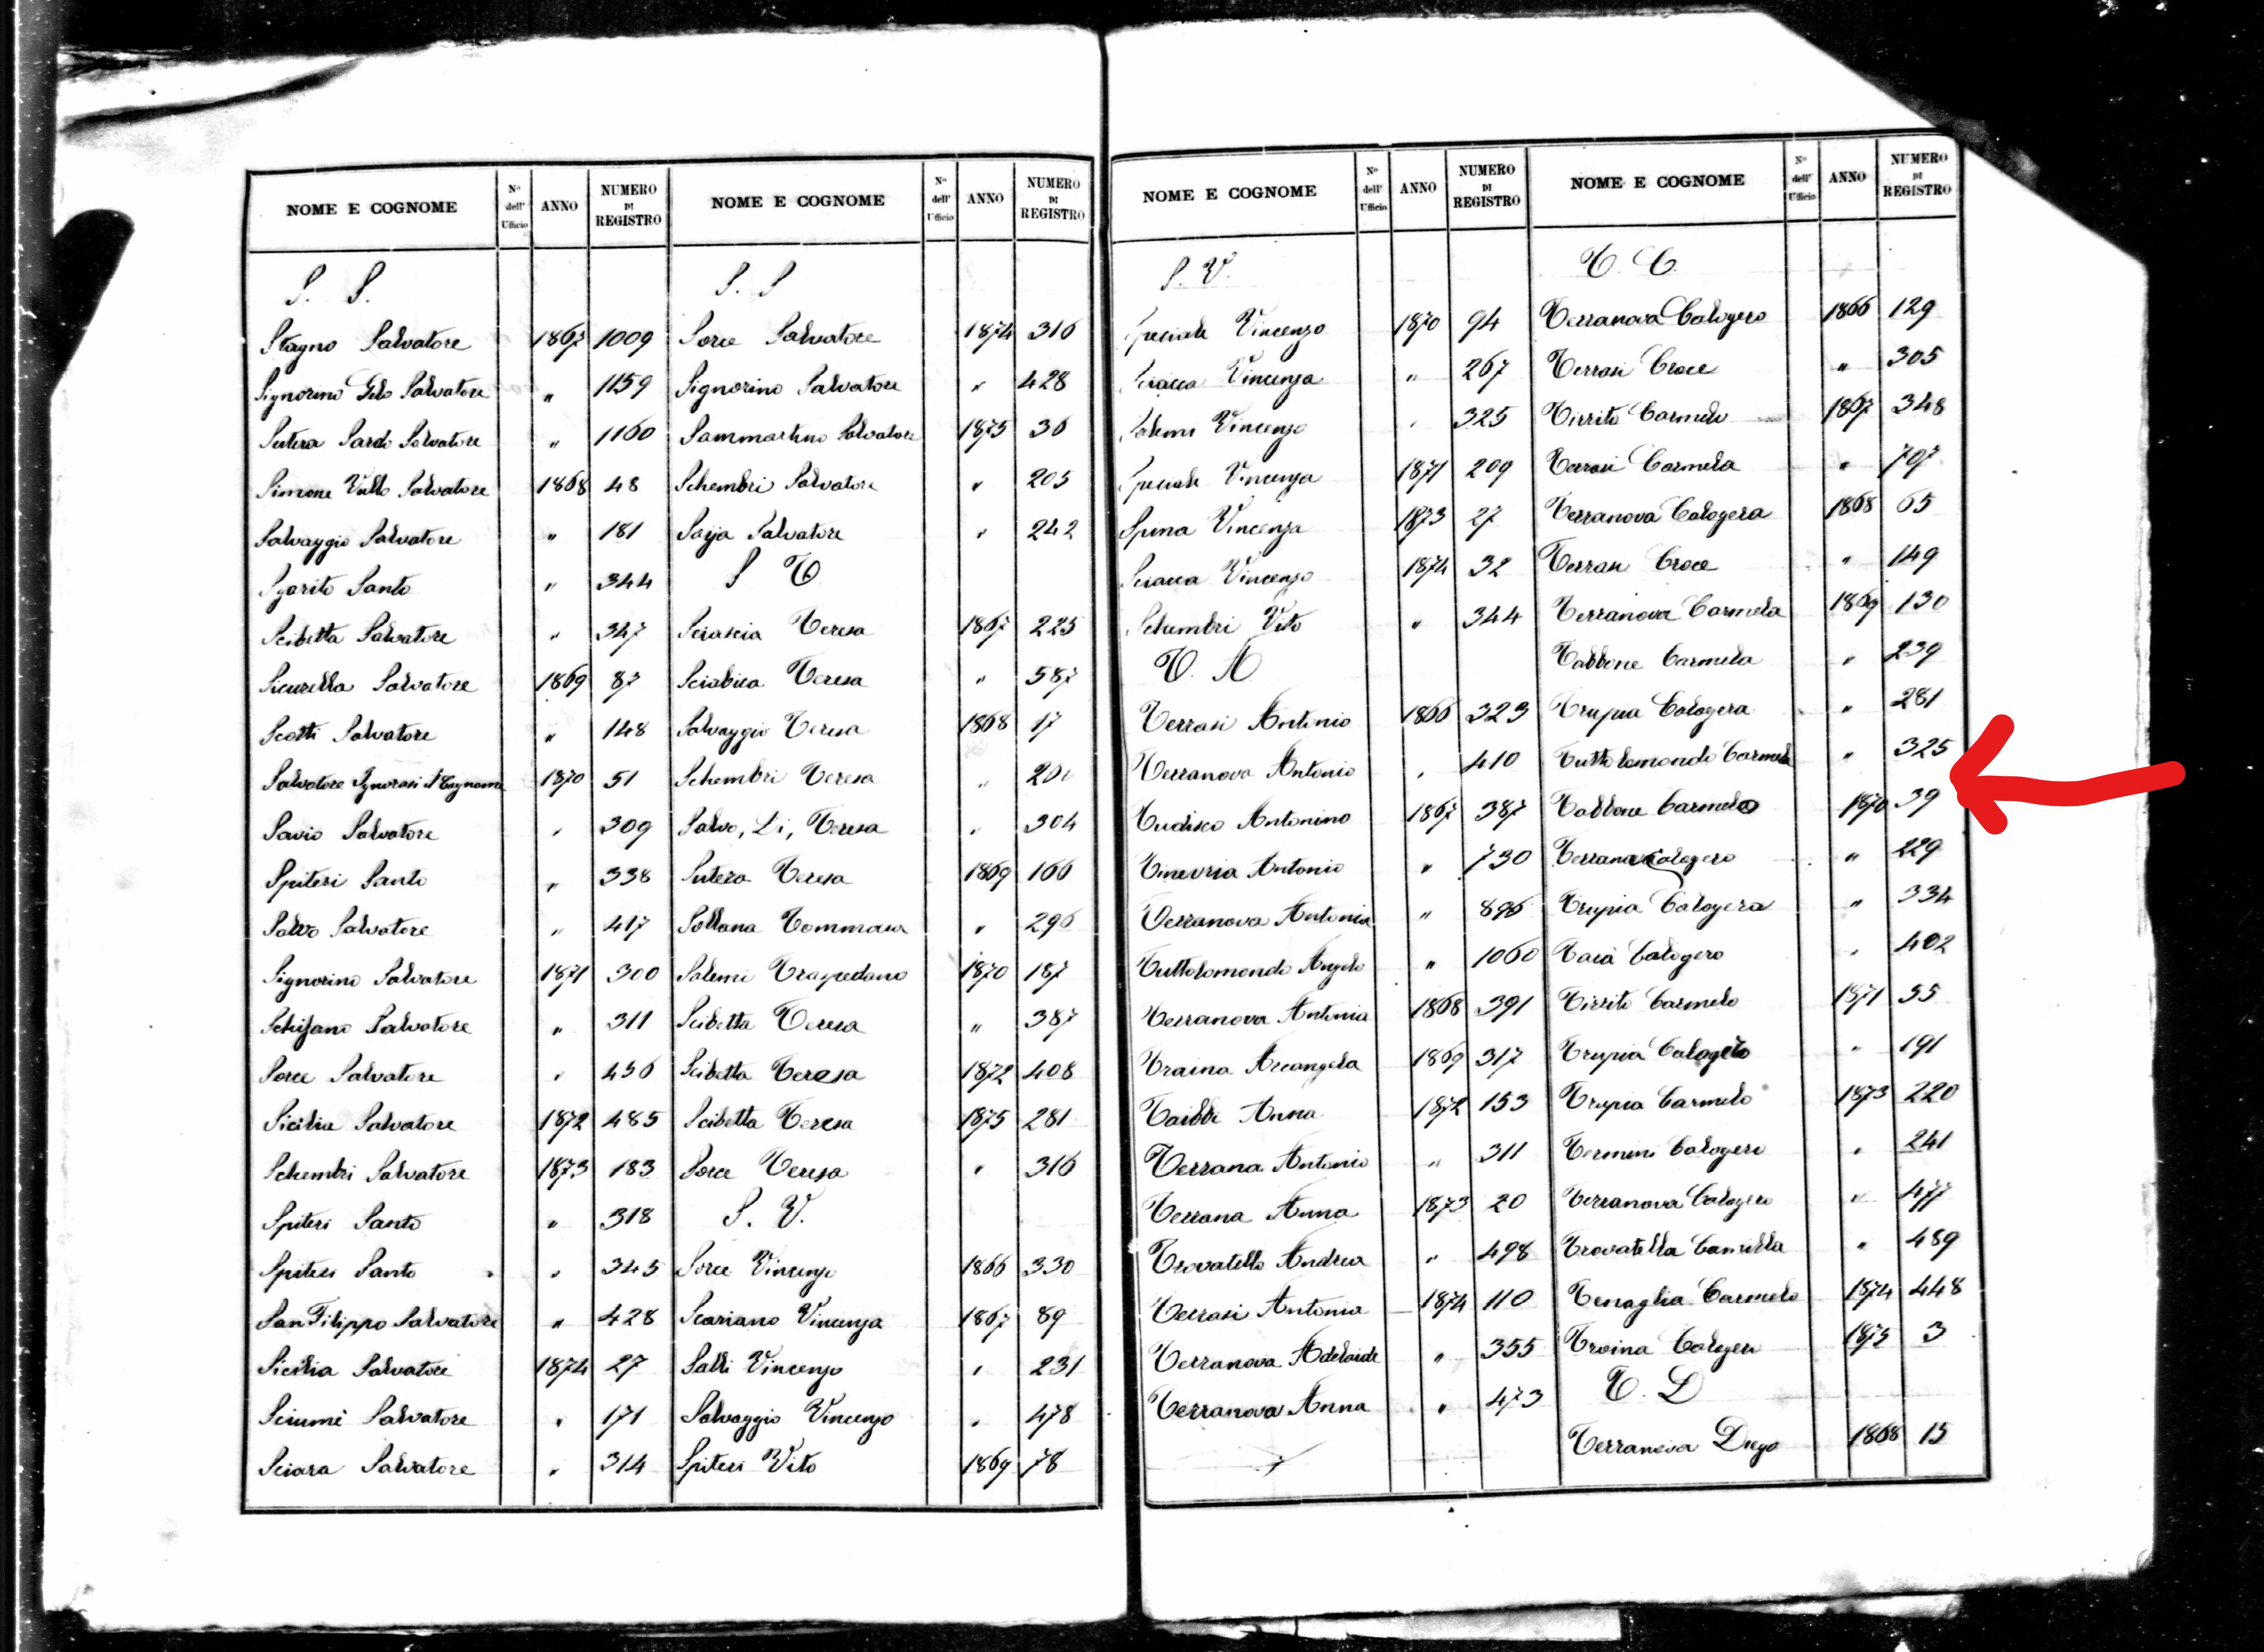 NOME E COGNOME Nº dell' Ufficio ANNO NUMERO DI REGISTRO
S. S.
Stagno Salvatore 1867 1009
Signorino Gelo Salvatore " 1159
Sutera Sardo Salvatore " 1160
Simone Vullo Salvatore 1868 48
Salvaggio Salvatore " 181
Sgarito Santo " 344
Scibetta Salvatore " 347
Sicurella Salvatore 1869 87
Scotti Salvatore " 148
Salvatore 1870 51
Savio Salvatore " 309
Spiteri Santo " 338
Salvo Salvatore " 417
Signorino Salvatore 1871 300
Schifano Salvatore " 311
Sorce Salvatore " 456
Sicilia Salvatore 1872 485
Schembri Salvatore 1873 183
Spiteri Santo " 318
Spiteri Santo " 345
San Filippo Salvatore " 428
Sicilia Salvatore 1874 27
Sciumè Salvatore " 171
Sciara Salvatore " 314
NOME E COGNOME Nº dell' Ufficio ANNO NUMERO DI REGISTRO
S. S
Sorce Salvatore 1874 316
Signorino Salvatore " 428
Sammartino Salvatore 1875 36
Schembri Salvatore " 205
Saija Salvatore " 242
S T
Sciascia Teresa 1867 225
Sciabica Teresa " 587
Salvaggio Teresa 1868 17
Schembri Teresa "
Salvo, Li, Teresa " 304
Sutera Teresa 1869 166
Sollana Tommasa " 296
Salemi Traspedano 1870 187
Scibetta Teresa " 387
Scibetta Teresa 1872 408
Scibetta Teresa 1875 281
Sorce Teresa " 316
S. V.
Sorce Vincenzo 1866 330
Scariano Vincenza 1867 89
Salli Vincenzo " 231
Salvaggio Vincenzo " 478
Spiteri Vito 1869 78
NOME E COGNOME Nº dell' Ufficio ANNO NUMERO DI REGISTRO
S. V.
Speciale Vincenzo 1870 94
Sciacca Vincenza " 267
Salemi Vincenzo " 325
Speciale Vincenza 1871 209
Spina Vincenza 1873 27
Sciacca Vincenzo 1874 32
Schembri Vito " 344
T. A
Terrasi Antonio 1866 323
Terranova Antonio " 410
Tudisco Antonino 1867 387
Tinevria Antonio " 730
Terranova Antonia " 896
Tuttolomondo Angelo " 1060
Terranova Antonia 1868 391
Traina Arcangela 1869 317
Taibbi Anna 1872 153
Terrana Antonio " 311
Terrana Anna 1873 20
Trovatello Andrea " 498
Terrasi Antonia 1874 110
Terranova Adelaide " 355
Terranova Anna " 473
NOME E COGNOME Nº dell' Ufficio ANNO NUMERO DI REGISTRO
T. C.
Terranova Calogero 1866 129
Terrasi Croce " 305
Tirrito Carmelo 1867 348
Terrasi Carmela " 707
Terranova Calogera 1868 65
Terrasi Croce " 149
Terranova Carmela 1869 130
Tabbone Carmela " 239
Trupia Calogera " 281
Tuttolomondo Carmela " 325
Tabbone Carmelo 1870 39
Terrana Calogero " 229
Trupia Calogera " 334
Taià Calogero " 402
Tirrito Carmelo 1871 55
Trupia Calogero " 191
Trupia Carmelo 1873 220
Termini Calogero " 241
Terranova Calogero " 477
Trovatella Camilla " 489
Tenaglia Carmelo 1874 448
Troina Calogero 1875 3
T. D
Terranova Diego 1868 15